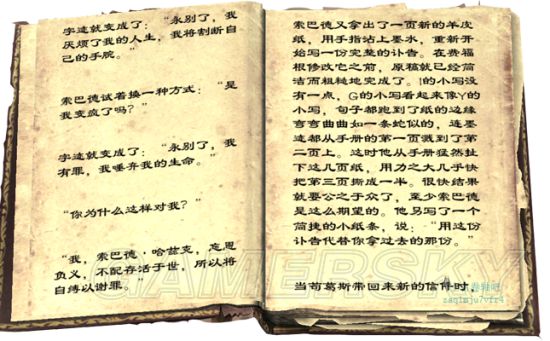 字迹就变成了：“永别了，我
厌烦了我的人生，我将割断自
己的手腕。”
索巴德试着换一种方式：“是
我变疯了吗？”
字迹就变成了：“永别了，我
有罪，我唾弃我的生命。”
“你为什么这样对我？”
“我，索巴德·哈兹克，忘恩
负义，不配存活于世，所以将
自缚以谢罪。”
索巴德又拿出了一页新的羊皮
纸，用手指沾上墨水，重新开
始写一份完整的讣告。在费福
根修改它之前，原稿就已经简
洁而粗糙地完成了。i的小写没
有一点，G的小写看起来像Y的
小写，句子都跑到了纸的边缘
弯弯曲曲如一条蛇似的，连墨
迹都从手册的第一页溅到了第
二页上。这时他从手册猛然扯
下这几页纸，用力之大几乎快
把第三页撕成一半。很快结果
就要公之于众了，至少索巴德
是这么期望的。他另写了一个
简捷的小纸条，说：“用这份
讣告代替你拿过去的那份。”
当苟葛斯带回来新的信件时，
GAMERSKY
zaq1mju7vfr4